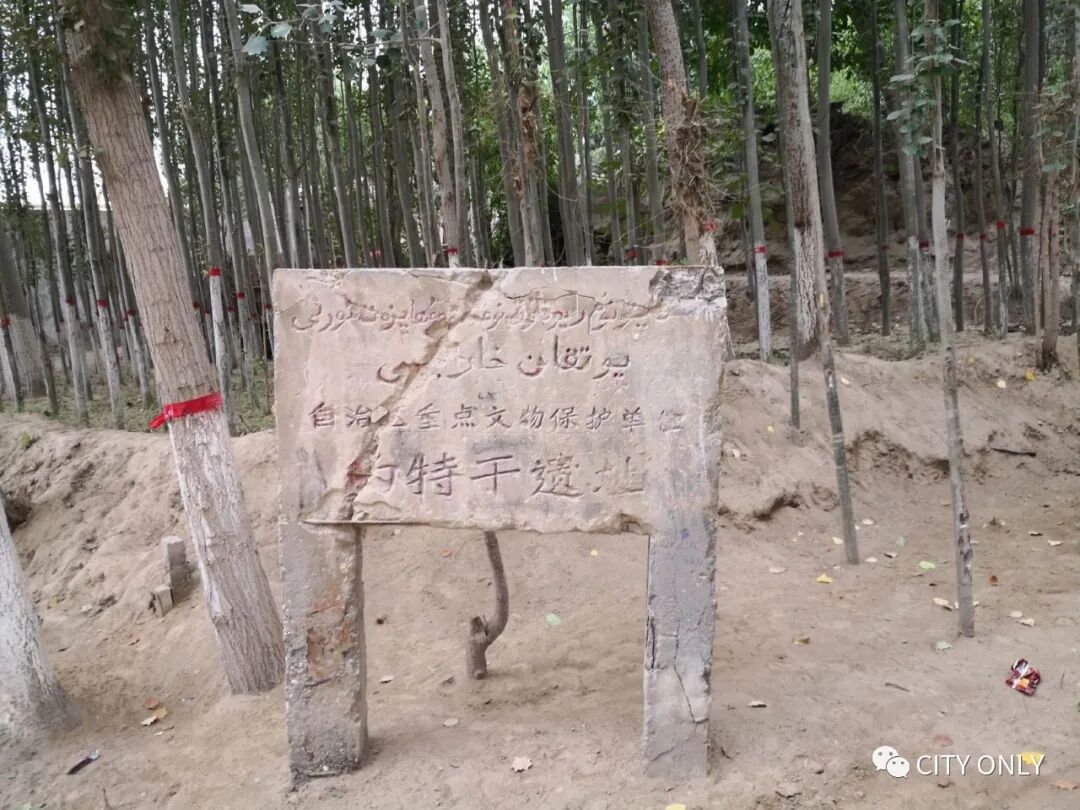 يوتقان خارابىسى
自治区重点文物保护单位
约特干遗址
CITY ONLY